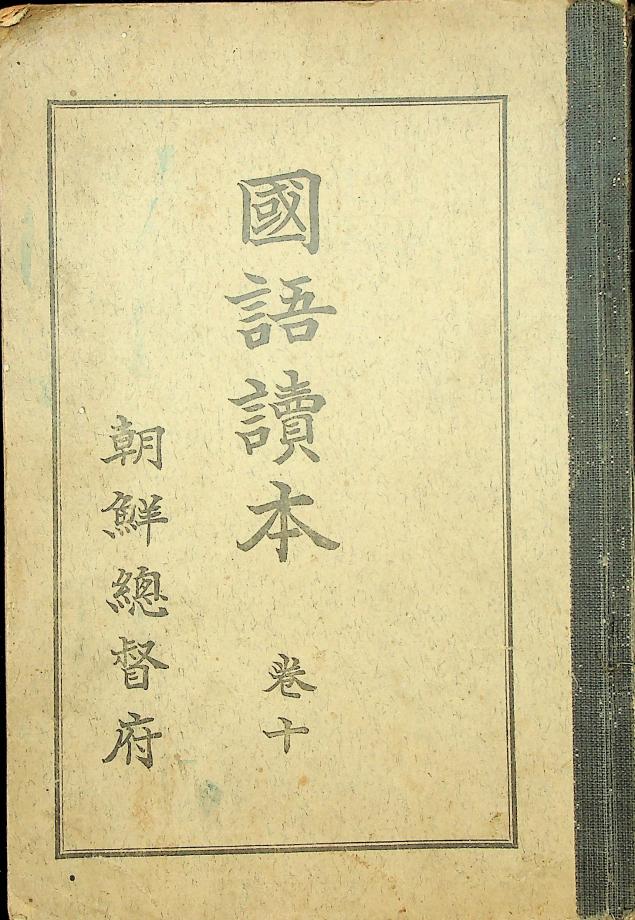 國語讀本 卷十
朝鮮總督府